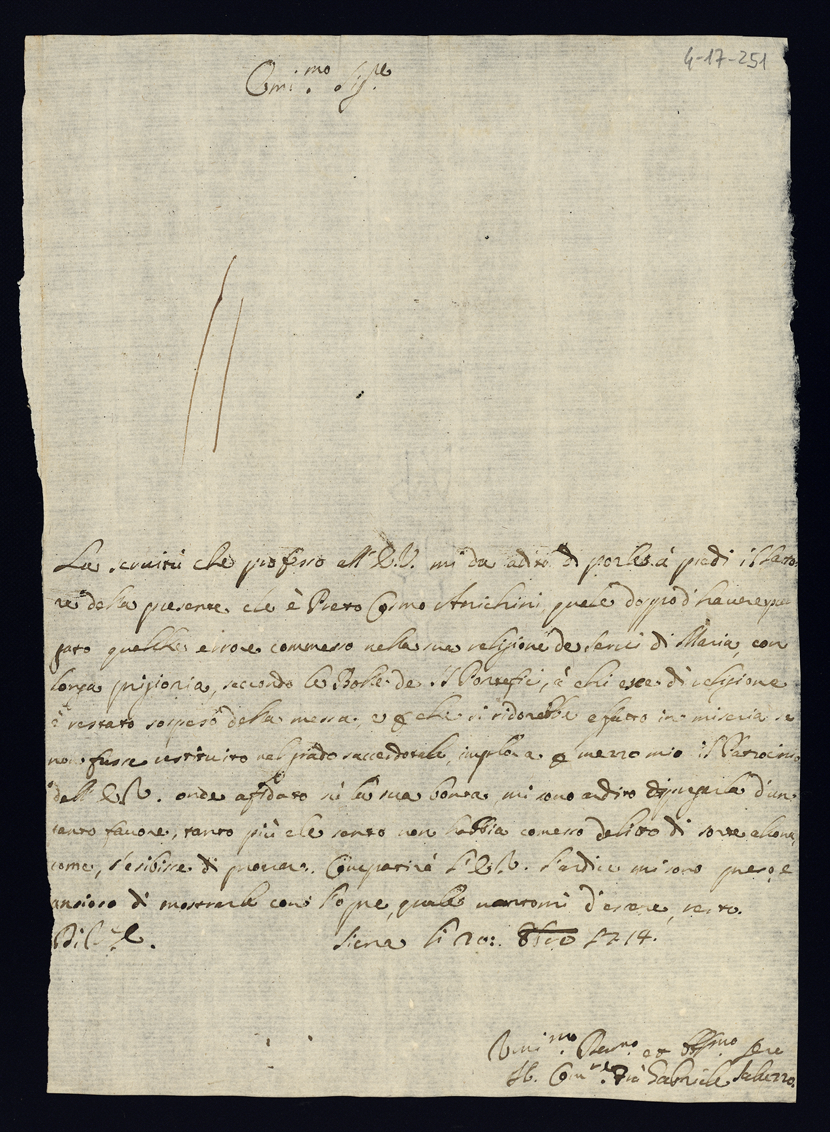 4-17-251
Em:mo Sig.re
La servitù che professo all' E.V. mi da adito di porle à piedi il Lato
re della presente che è Prete Cosmo Anichini, quale doppo d'havere pur
gato qualche errore commesso nella sua religione de Servi di Maria, con
longa prigionia, secondo le Bolle de Pontefici, à chi esce di religione
è restato sospeso della messa, e che si ridorebbe affatto in miseria se
non fusse restituito nel grado saccerdotale, implora p mezzo mio il Patrocinio
dell' E.V. onde affidato sù la sua bontà, mi sono ardito di pregarla d'un
tanto favore, tanto più che sento non habbia comesso delitto di sorte alcuna
come s'esibisce di provare. Compatirà l'E.V. l'ardire mi sono preso, e
ansioso di mostrarle con l'opre, quale vantomi d'essere, resto.
Di V. E. Siena li 20: 8bre 1714.
Umi:mo Dev:mo et Obl:mo Ser.e
Fra Gabriele